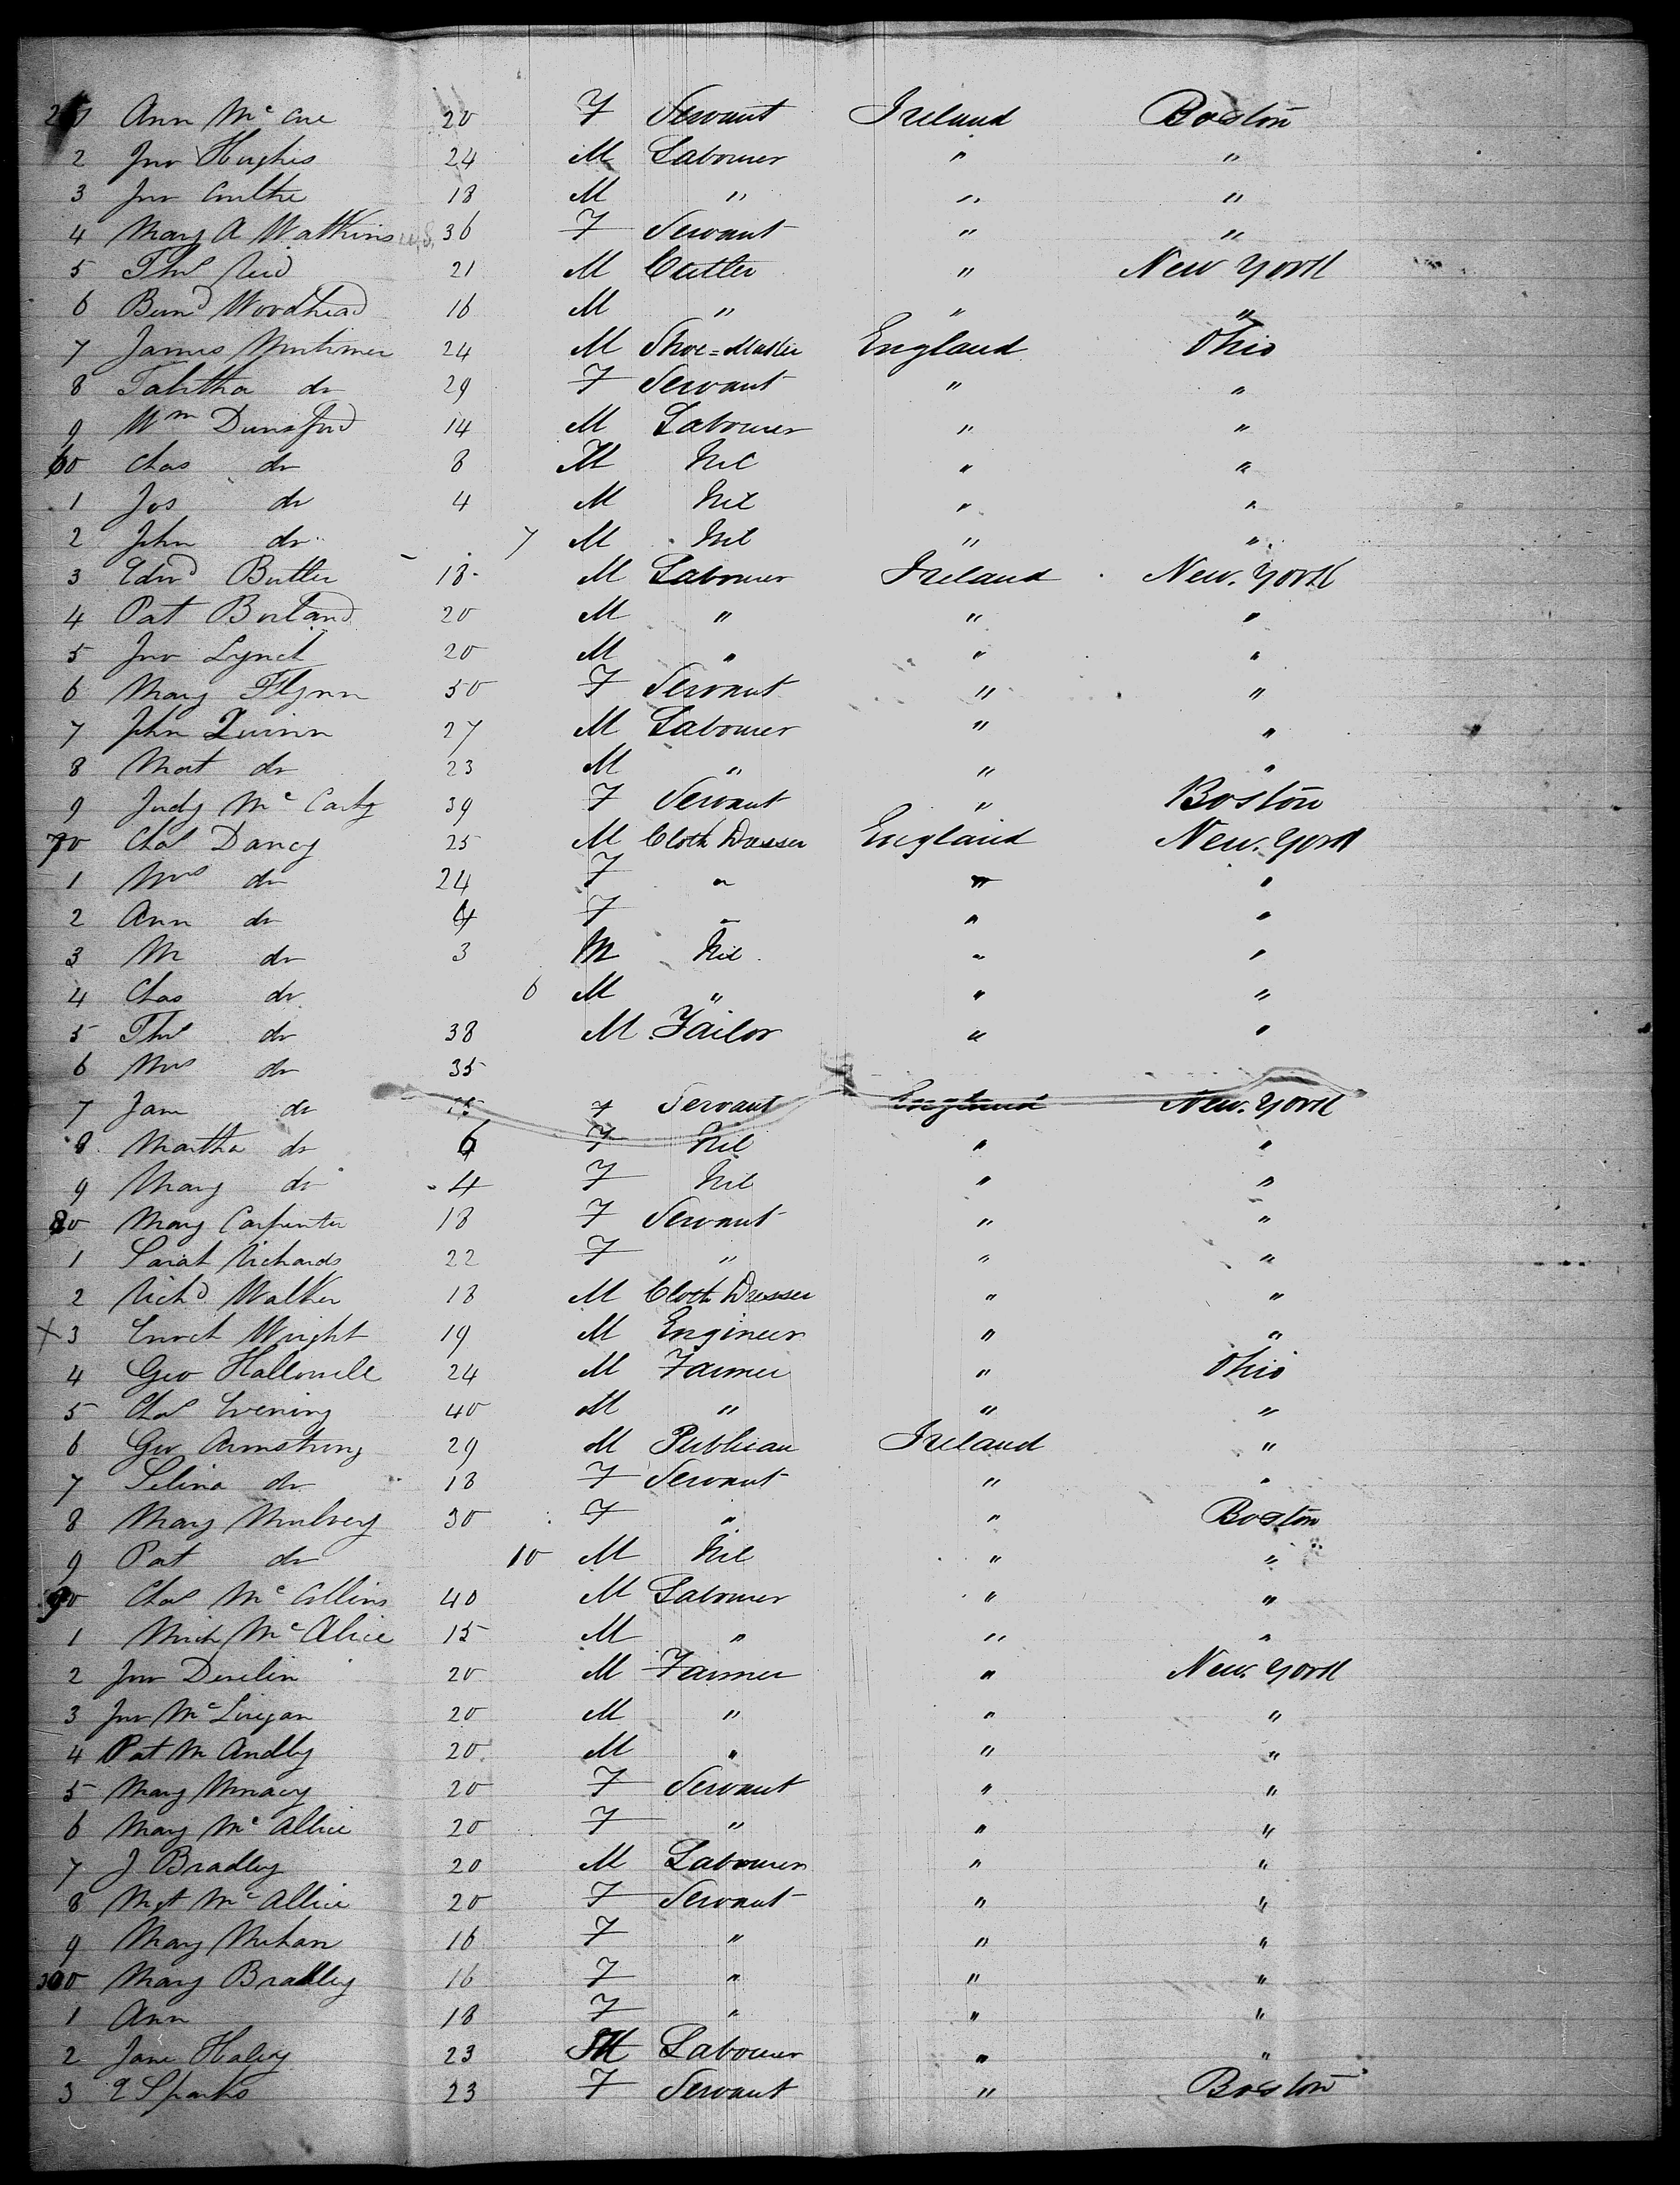 Ann Mc 20 F Servant Ireland Boston
2 Jno Hughes 24 M Labourer " "
3 Jno 18 M " " "
4 Mary A Watkins 36 F Servant " "
5 Thos Reid 21 M Cutler " New York
6 Woodhead 16 M " " "
7 James Mortimer 24 M Shoe=Maker England Ohio
8 Tabitha do 29 F Servant " "
9 Wm Dunsford 14 M Labourer " "
60 Chas do 8 M Nil " "
1 Jos do 4 M Nil " "
2 John do 7 M Nil " "
3 Edwd Butler 18 M Labourer Ireland New York
4 Pat Borland 20 M " " "
5 Jno Lynch 20 M " " "
6 Mary Flynn 50 F Servant " "
7 John Quinn 27 M Labourer " "
8 Mat do 23 M " " "
9 Judy Mc Carty 39 F Servant " Boston
70 Chas Dancy 25 M Cloth Dresser England New York
1 Mrs do 24 F " " "
2 Ann do 4 F " " "
3 M do 3 M Nil " "
4 Chas do 6 M " " "
5 Thos do 38 M Tailor " "
6 Mrs do 35
7 Jane do F Servant England New York
8 Martha do 6 F Nil " "
9 Mary do 4 F Nil " "
80 Mary Carpenter 18 F Servant " "
1 Sarah Richards 22 F " " "
2 Richd Walker 18 M Cloth Dresser " "
X 3 Enoch Wright 19 M Engineer " "
4 Geo Hallowell 24 M Farmer " Ohio
5 Chas Evening 40 M " " "
6 Geo Armstrong 29 M Publican Ireland "
7 Selina do 18 F Servant " "
8 Mary Mulvey 30 F " " Boston
9 Pat do 10 M Nil " "
90 Chas Mc Collins 40 M Labourer " "
1 Mich Mc Alice 15 M " " "
2 Jno Develin 20 M Farmer " New York
3 Jno Mc 20 M " " "
4 Pat M 20 M " " "
5 Mary 20 F Servant " "
6 Mary Mc Allice 20 F " " "
7 J Bradley 20 M Labourer " "
8 Mgt Mc Allice 20 F Servant " "
9 Mary Mehan 16 F " " "
300 Mary Bradley 16 F " " "
1 Ann 18 F " " "
2 Jane Haley 23 M Labourer " "
3 E Sparks 23 F Servant " Boston